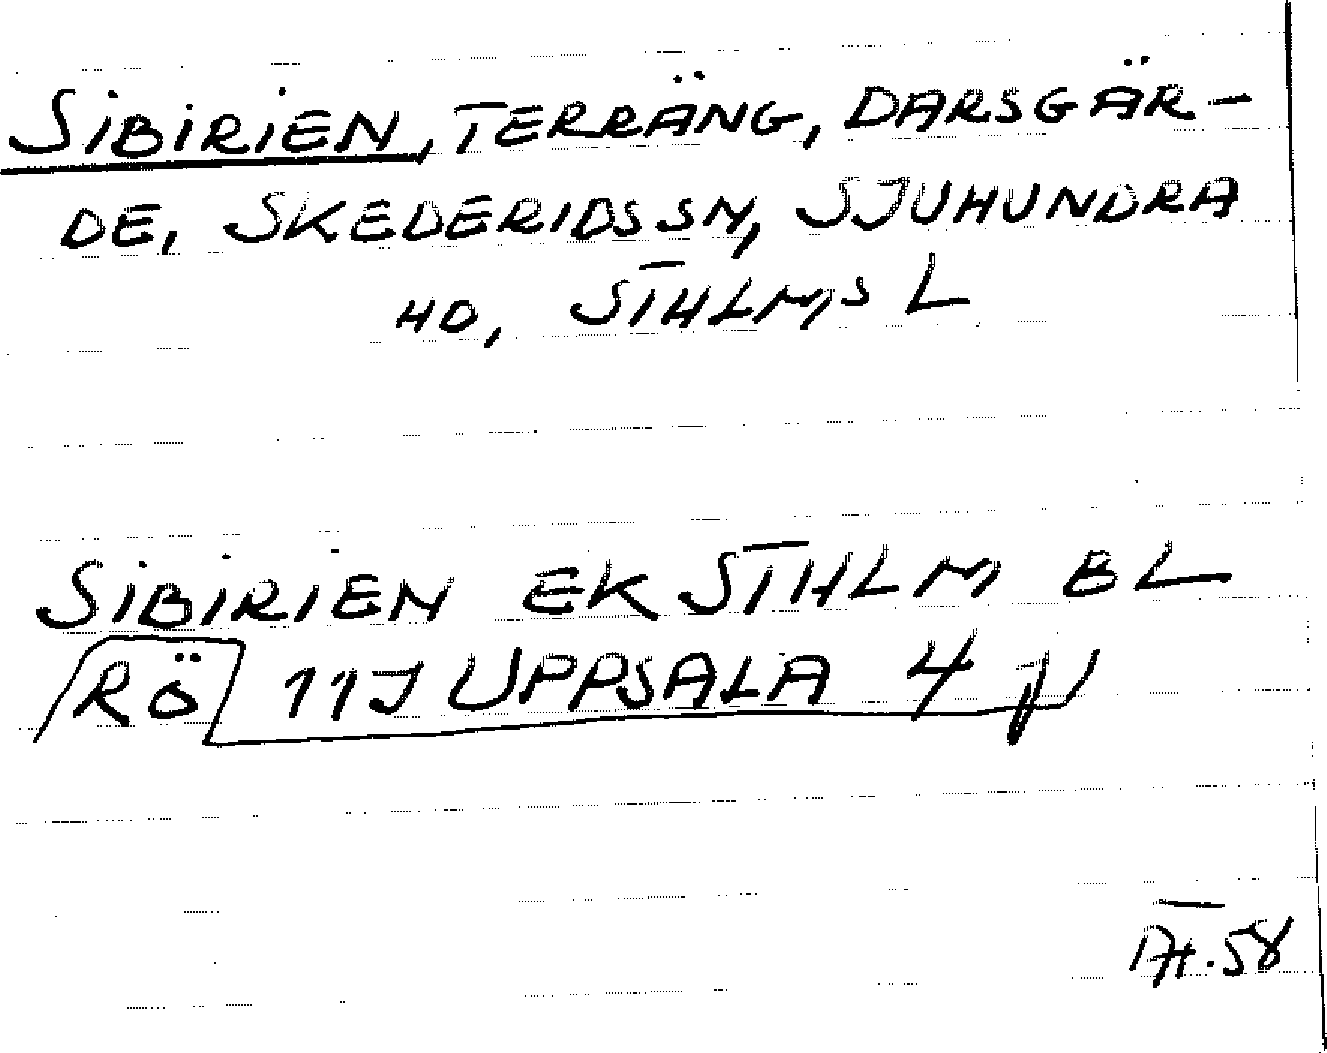 SIBIRIEN, TERRÄNG, DARSGÄR-
DE, SKEDERIDS SN, SJUHUNDRA
HD, STHLMS L
SIBIRIEN EK STHLM BL
RÖ 11J UPPSALA 4
.58